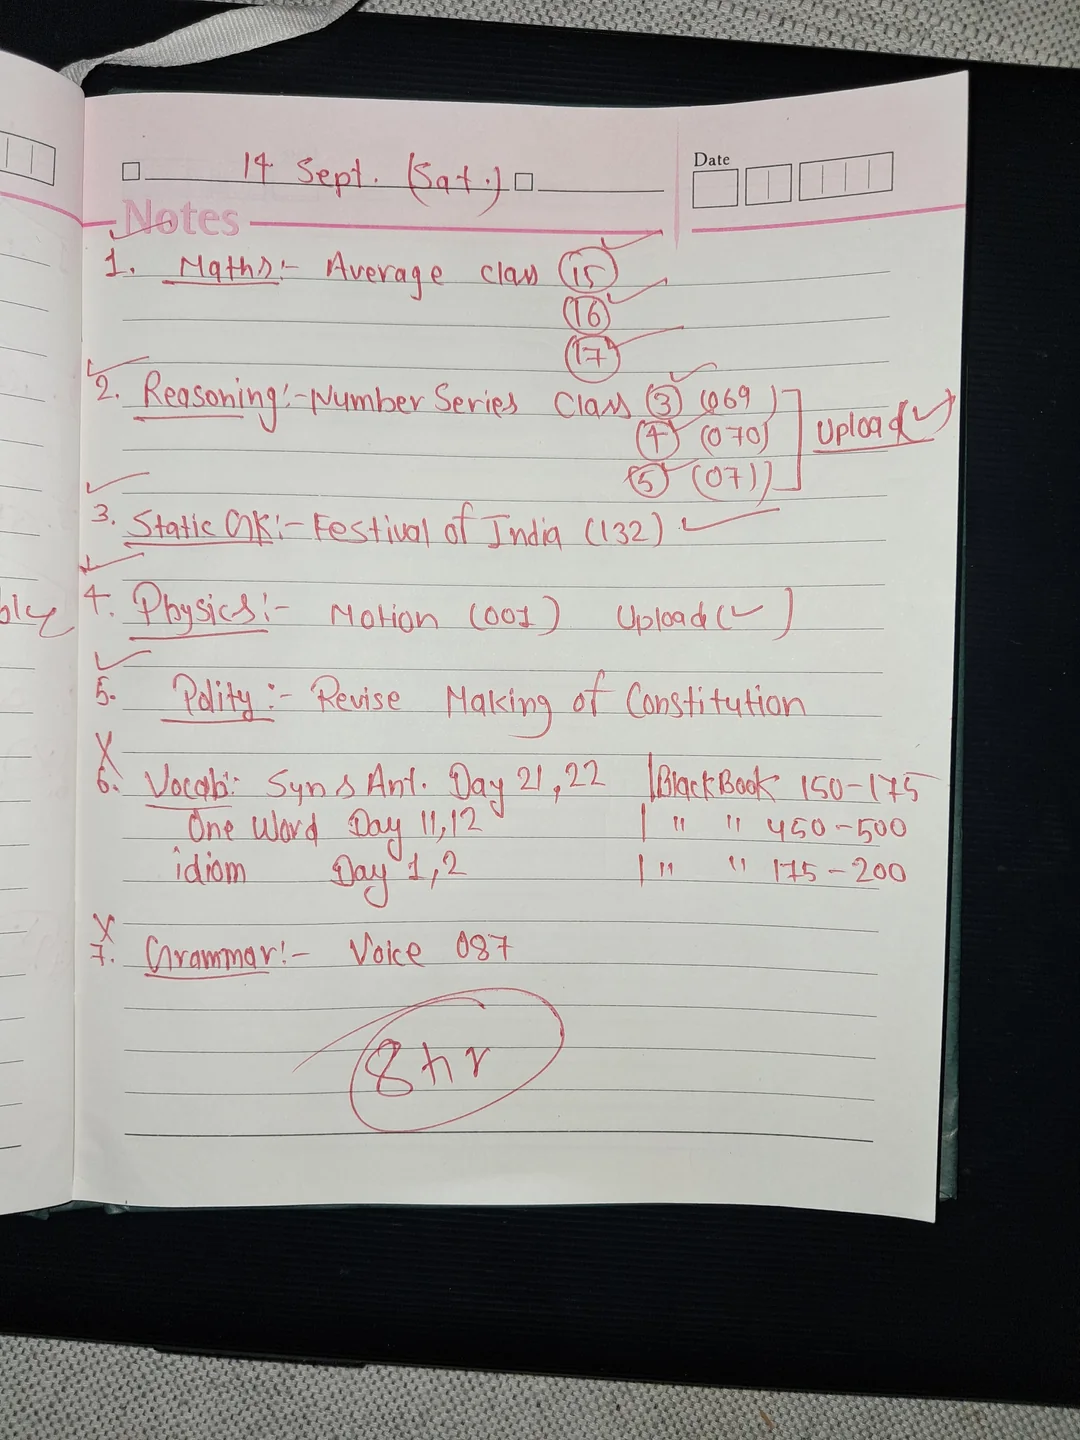 14 Sept. (Sat.)
Date
Notes
1. Maths:- Average class 15
16
17
2. Reasoning:- Number Series Class 3 (069)
4 (070) Upload(✓)
5 (071)
3. Static GK:- Festival of India (132) ✓
bly
4. Physics:- Motion (001) Upload (✓)
5. Polity:- Revise Making of Constitution
X
6. Vocab:- Syn & Ant. Day 21,22 | BlackBook 150-175
One Word Day 11,12 | " " 450-500
idiom Day 1,2 | " " 175-200
X
7. Grammar:- Voice 087
8 hr